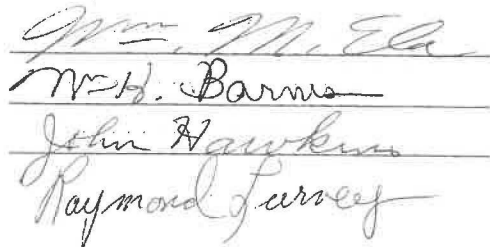 Wm. M. Ela
Wm H. Barnes
John Hawkins
Raymond Turvey